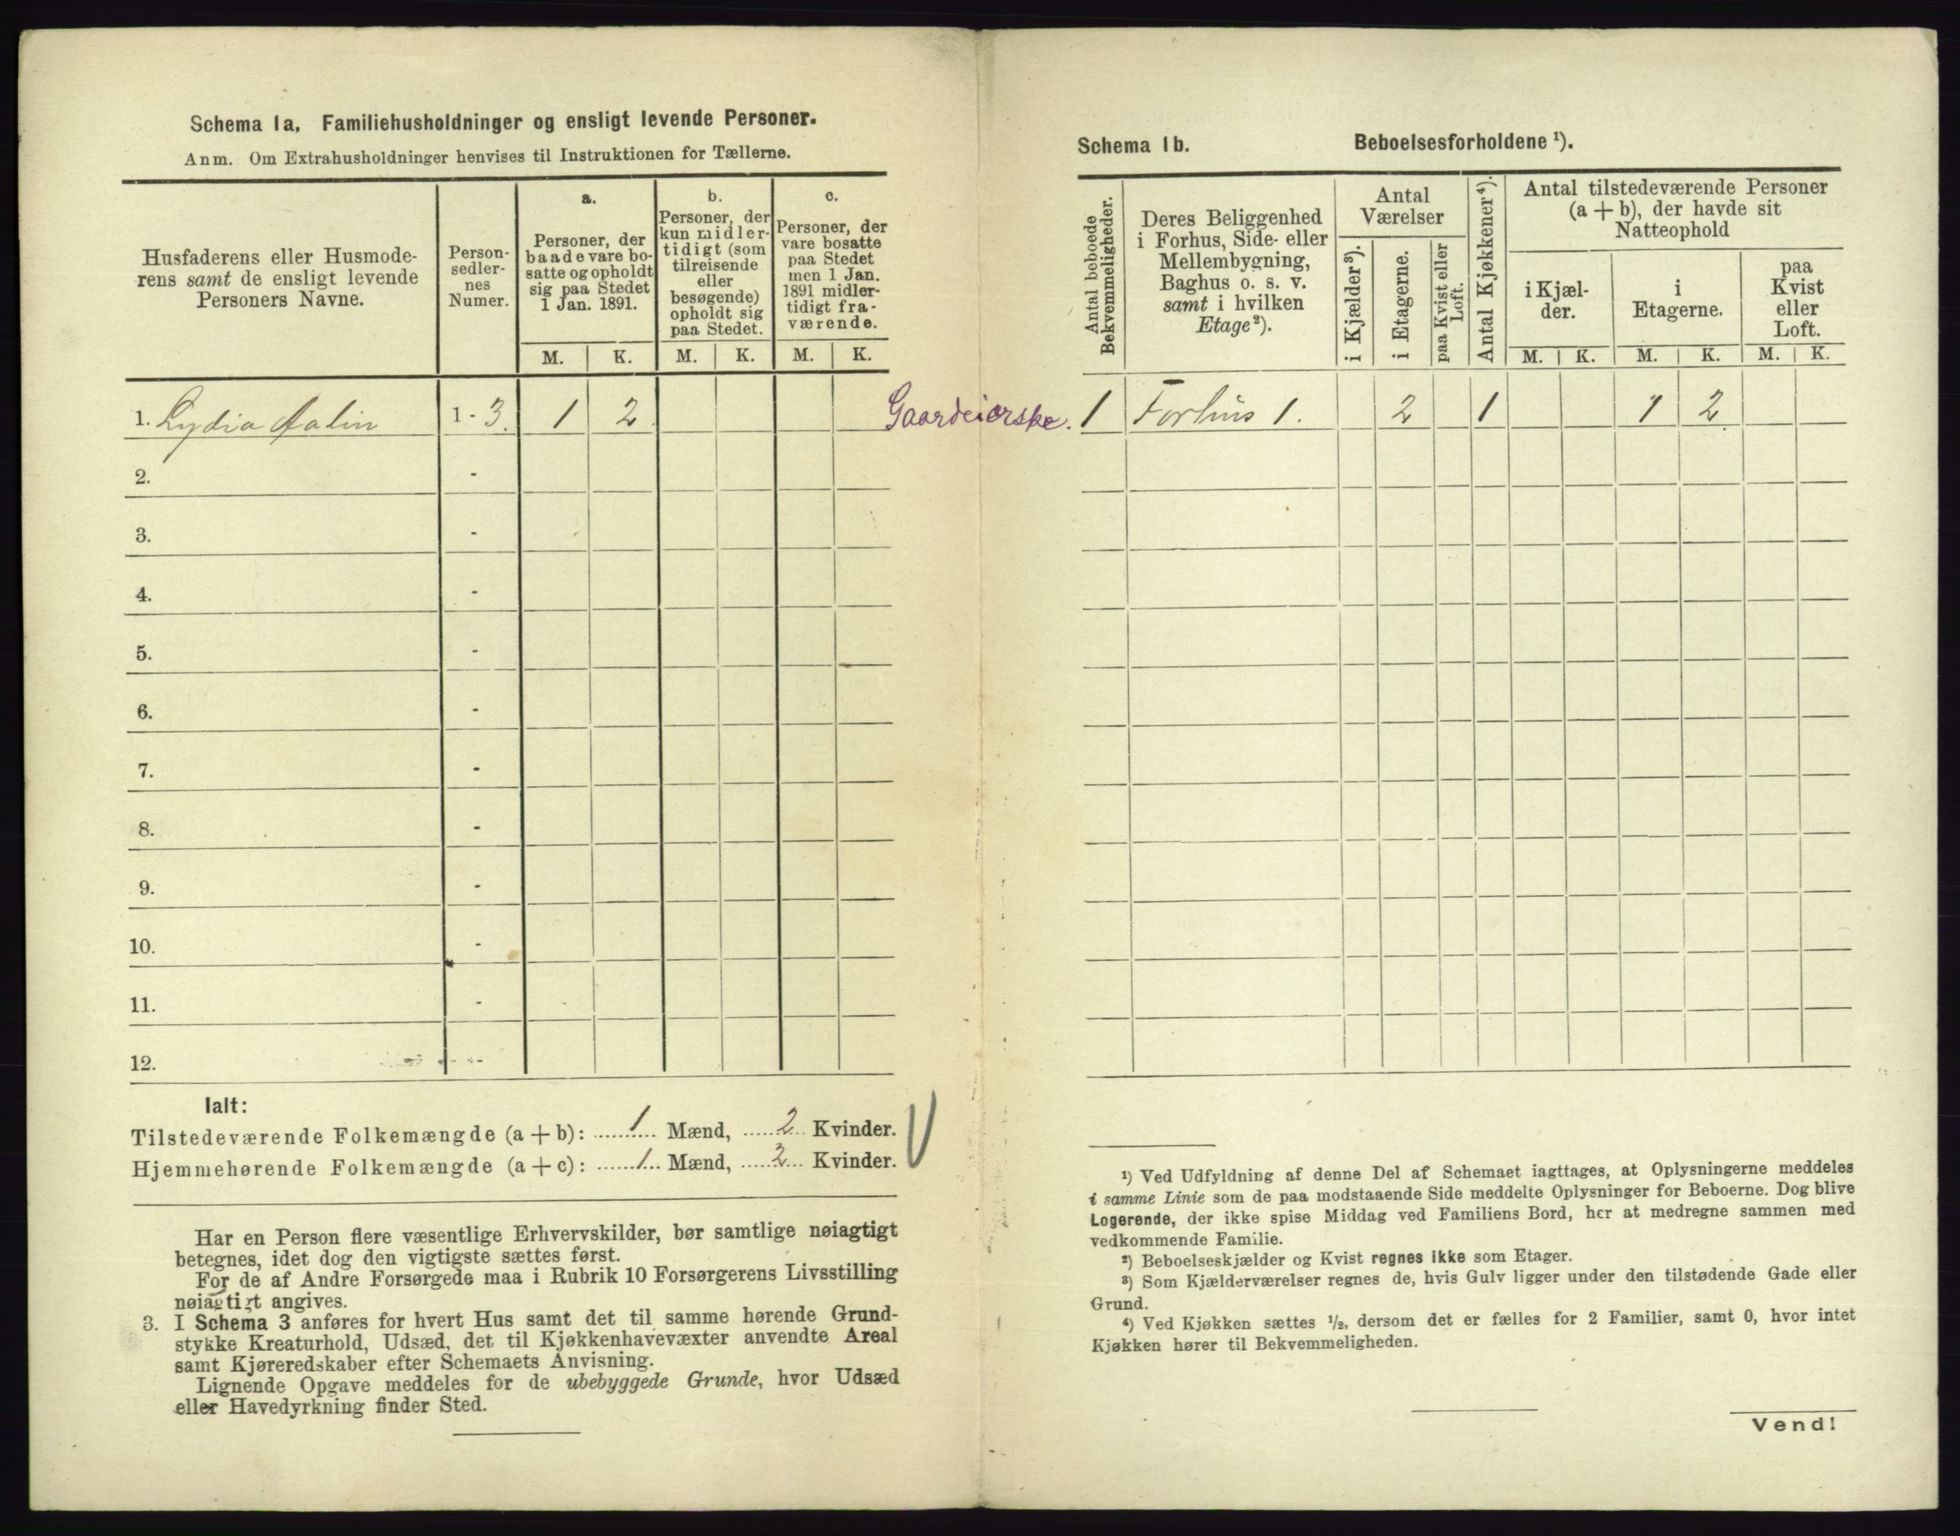 Schema 1a. Familiehusholdninger og ensligt levende Personer.
Anm. Om Extrahusholdninger henvises til Instruktionen for Tællerne.
Husfaderens eller Husmode-
rens samt de ensligt levende
Personers Navne.
Person-
sedler-
nes
Numer.
a.
Personer, der
baade vare bo-
satte og opholdt
sig paa Stedet
1 Jan. 1891.
b.
Personer, der
kun midler-
tidigt (som
tilreisende
eller
besøgende)
opholdt sig
paa Stedet.
c.
Personer, der
vare bosatte
paa Stedet
men 1 Jan.
1891 midler-
tidigt fra-
værende.
M. K. M. K. M. K.
1. Lydia Aalin 1 - 3. 1 2 Gaardeierske.
2. -
3. -
4. -
5. -
6. -
7. -
8. -
9. -
10. -
11. -
12. -
Ialt:
Tilstedeværende Folkemængde (a + b): 1 Mænd, 2 Kvinder.
Hjemmehørende Folkemængde (a + c): 1 Mænd, 2 Kvinder.
Har en Person flere væsentlige Erhvervskilder, bør samtlige nøiagtigt
betegnes, idet dog den vigtigste sættes først.
For de af Andre Forsørgede maa i Rubrik 10 Forsørgerens Livsstilling
nøiagtigt angives.
3. I Schema 3 anføres for hvert Hus samt det til samme hørende Grund-
stykke Kreaturhold, Udsæd, det til Kjøkkenhavevæxter anvendte Areal
samt Kjøreredskaber efter Schemaets Anvisning.
Lignende Opgave meddeles for de ubebyggede Grunde, hvor Udsæd
eller Havedyrkning finder Sted.
Schema 1b. Beboelsesforholdene ¹).
Antal beboede
Bekvemmeligheder.
Deres Beliggenhed
i Forhus, Side- eller
Mellembygning,
Baghus o. s. v.
samt i hvilken
Etage²).
Antal
Værelser
i Kjælder³).
i Etagerne.
paa Kvist eller
Loft.
Antal Kjøkkener⁴).
Antal tilstedeværende Personer
(a + b), der havde sit
Natteophold
i Kjæl-
der.
i
Etagerne.
paa
Kvist
eller
Loft.
M. K. M. K. M. K.
1 Forhus 1. 2 1 1 2
¹) Ved Udfyldning af denne Del af Schemaet iagttages, at Oplysningerne meddeles
i samme Linie som de paa modstaaende Side meddelte Oplysninger for Beboerne. Dog blive
Logerende, der ikke spise Middag ved Familiens Bord, her at medregne sammen med
vedkommende Familie.
²) Beboelseskjælder og Kvist regnes ikke som Etager.
³) Som Kjælderværelser regnes de, hvis Gulv ligger under den tilstødende Gade eller
Grund.
⁴) Ved Kjøkken sættes ½, dersom det er fælles for 2 Familier, samt 0, hvor intet
Kjøkken hører til Bekvemmeligheden.
Vend!